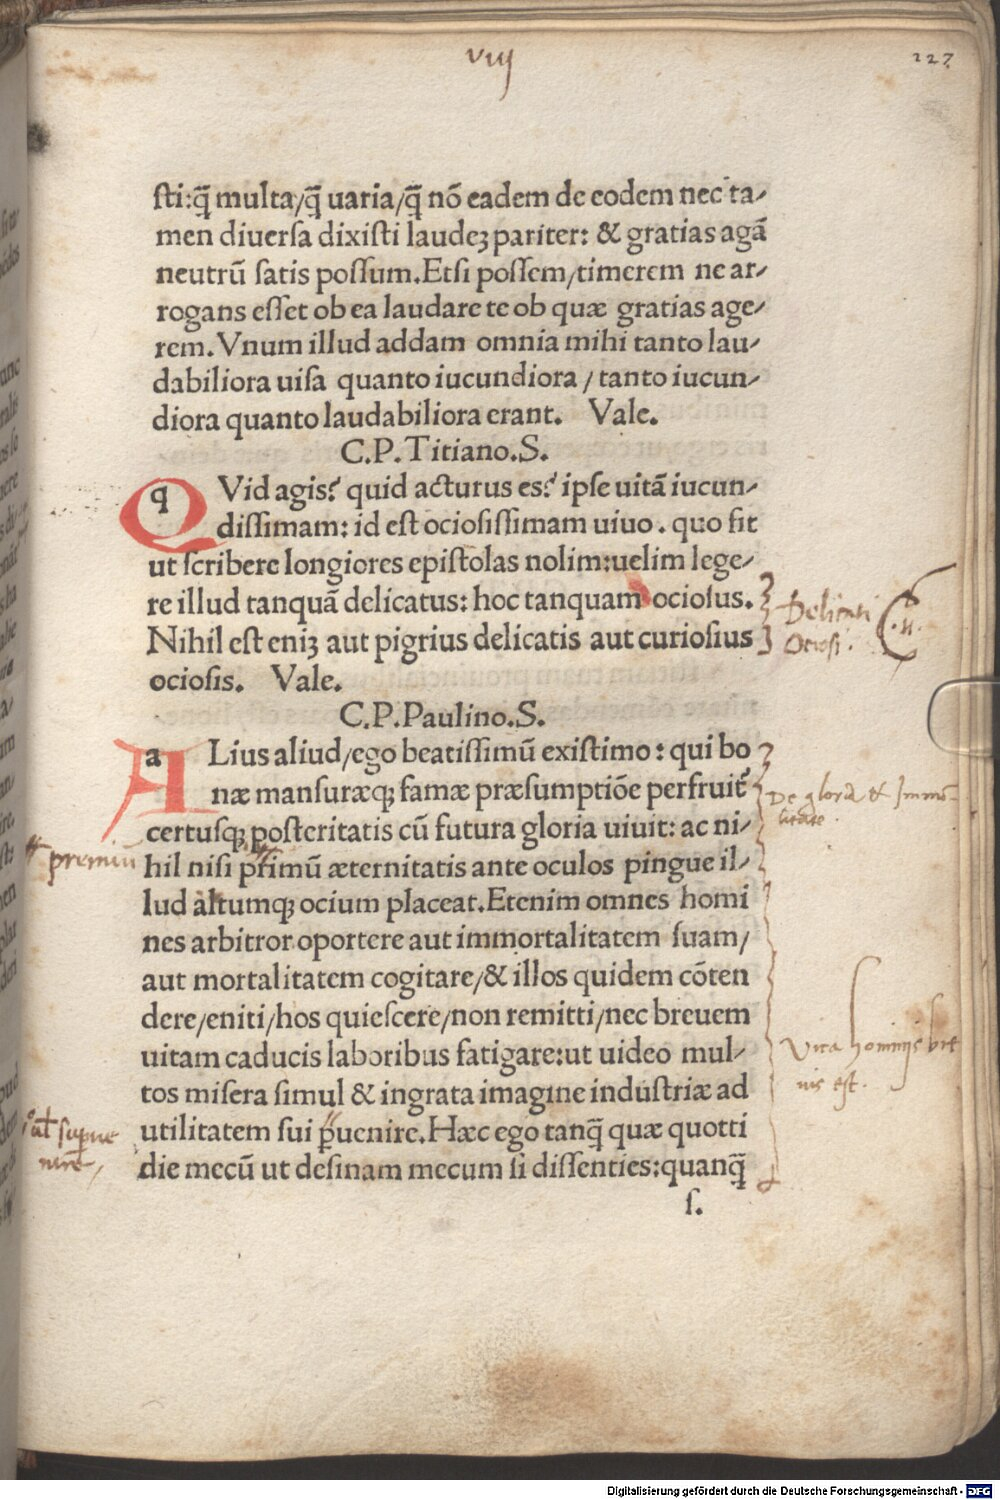 viij
227
sti:q̄ multa/q̄ uaria/q̄ nō eadem de eodem nec ta⸗
men diuersa dixisti laudeꝫ pariter: & gratias agā
neutrū satis possum.Etsi possem/timerem ne ar⸗
rogans esset ob ea laudare te ob quæ gratias age⸗
rem. Vnum illud addam omnia mihi tanto lau⸗
dabiliora uisa quanto iucundiora / tanto iucun⸗
diora quanto laudabiliora erant. Vale.
C.P.Titiano.S.
q Vid agis? quid acturus es? ipse uitā iucun⸗
dissimam: id est ociosissimam uiuo . quo fit
ut scribere longiores epistolas nolim:uelim lege⸗
re illud tanquā delicatus: hoc tanquam ociosus.
Nihil est eniꝫ aut pigrius delicatis aut curiosius
ociosis. Vale.
Delicati
Ociosi.
C.P.Paulino.S.
a Lius aliud/ego beatissimū existimo : qui bo
næ mansuræqꝫ famæ præsumptiōe perfruit̄
certusqꝫ posteritatis cū futura gloria uiuit: ac ni⸗
hil nisi p̄rimū æternitatis ante oculos pingue il⸗
lud altumqꝫ ocium placeat.Etenim omnes homi
nes arbitror oportere aut immortalitatem suam/
aut mortalitatem cogitare/& illos quidem cōten
dere/eniti/hos quiescere/non remitti/nec breuem
uitam caducis laboribus fatigare:ut uideo mul⸗
tos misera simul & ingrata imagine industriæ ad
utilitatem sui ꝑuenire.Hæc ego tanq̄ quæ quotti
die mecū ut desinam mecum si dissenties:quanq̄
s.
De gloria & Immor
talitate.
premiū
Vita hominis bre
uis est.
Digitalisierung gefördert durch die Deutsche Forschungsgemeinschaft - DFG